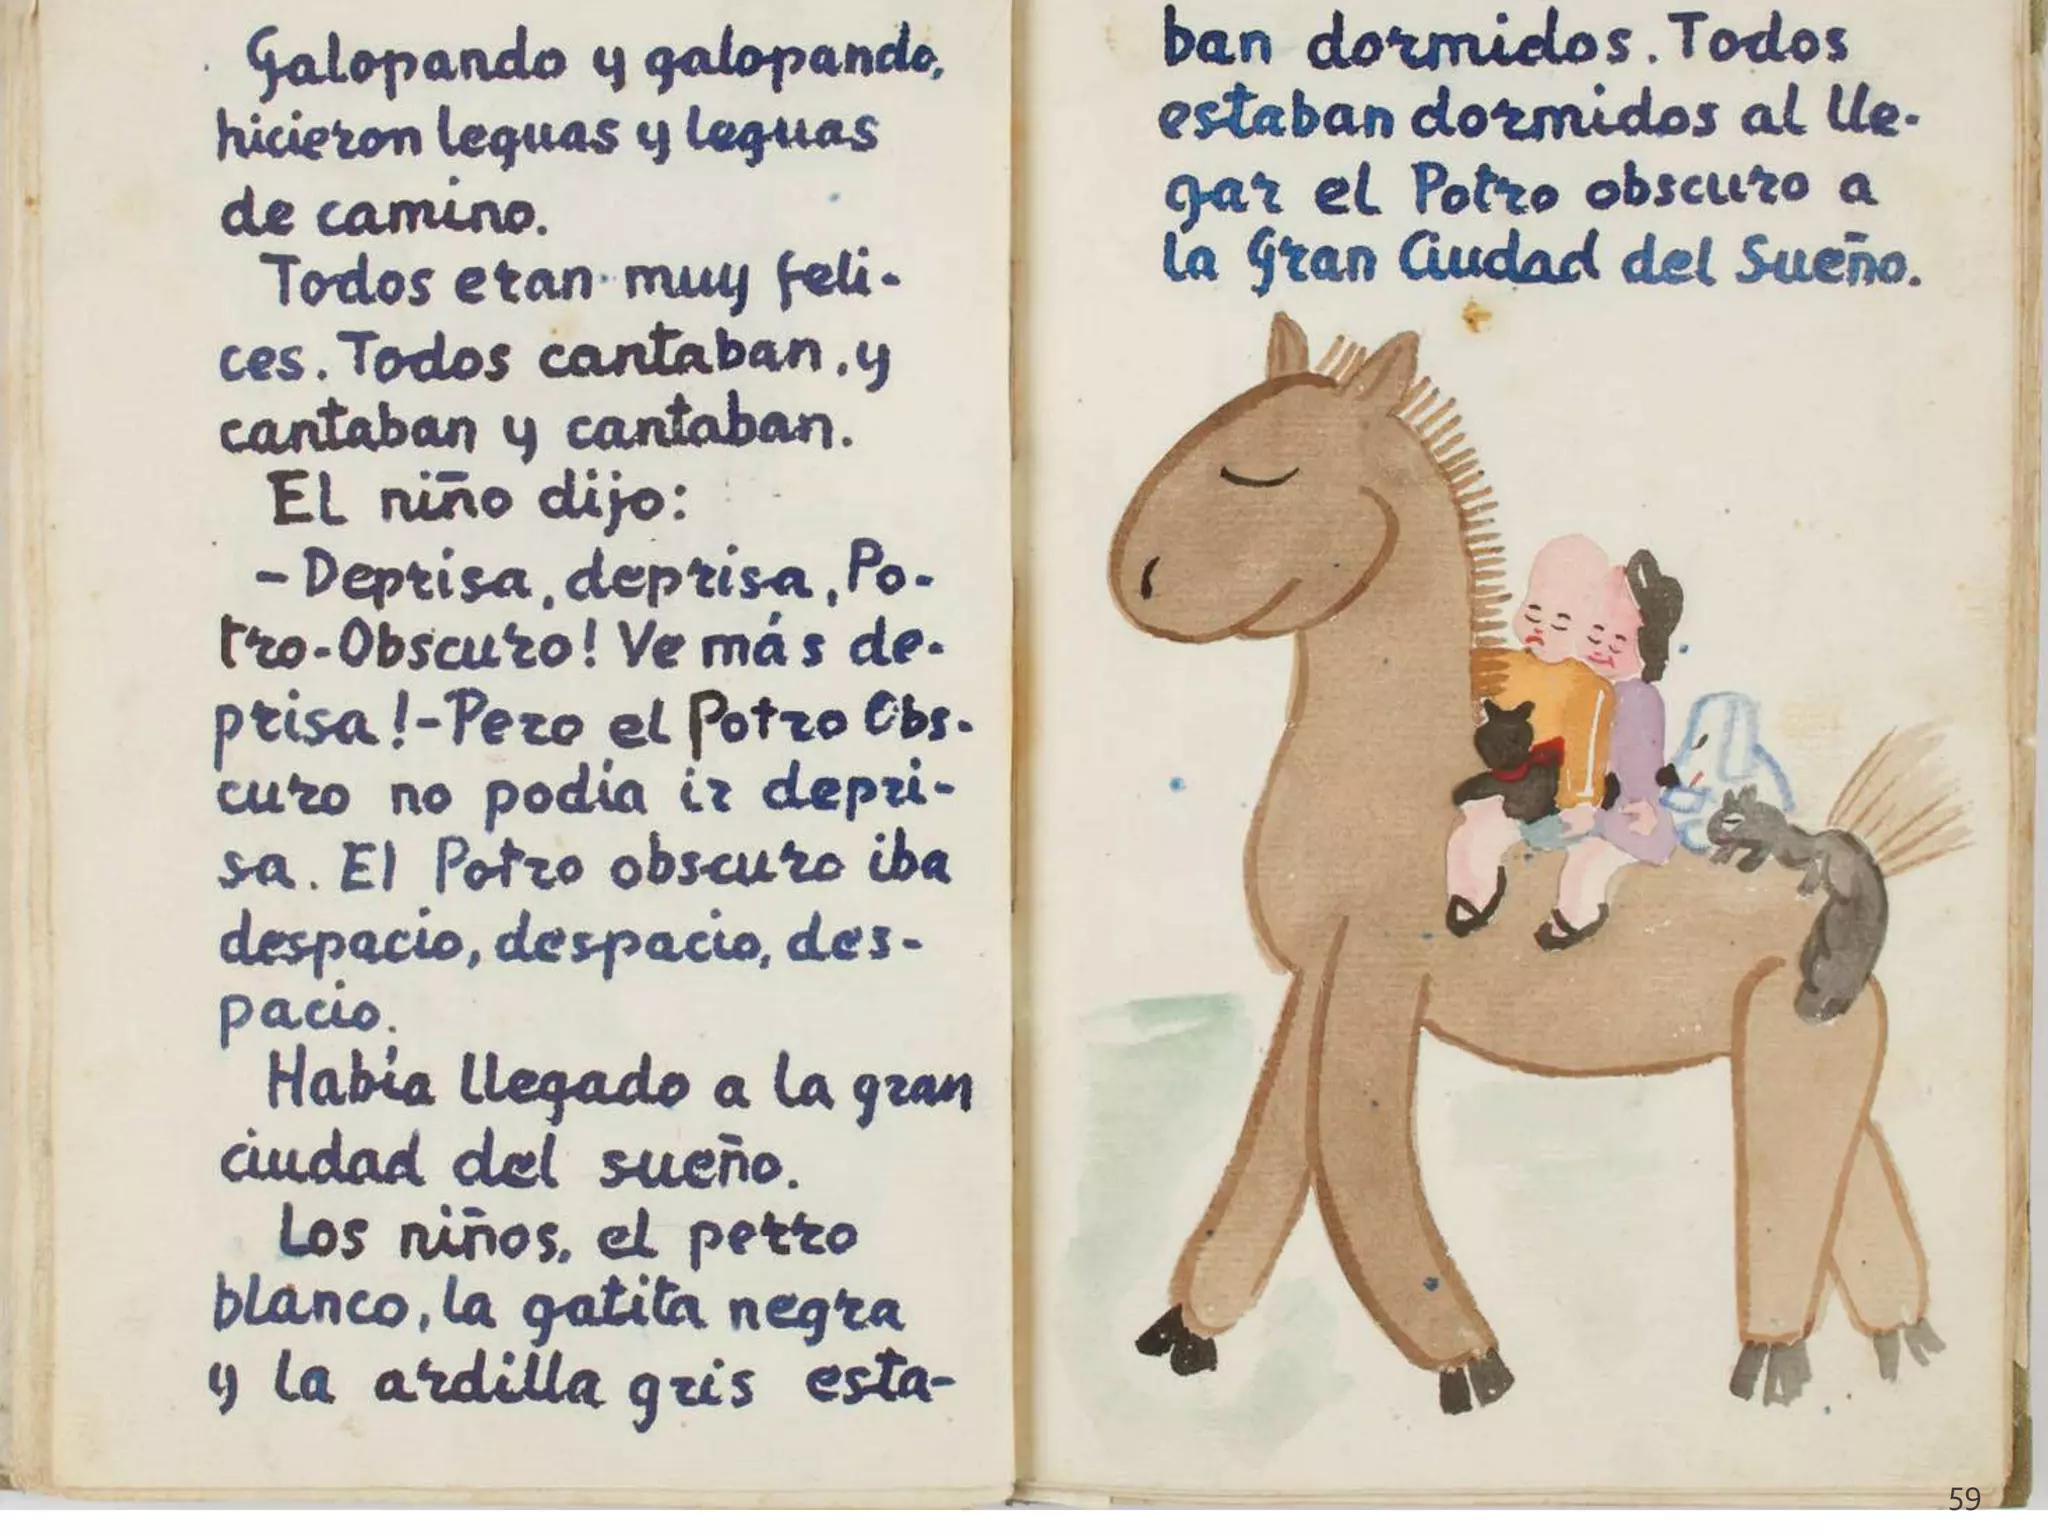 Galopando y galopando,
hicieron leguas y leguas
de camino.
Todos eran muy feli-
ces. Todos cantaban, y
cantaban y cantaban.
El niño dijo:
- Deprisa, deprisa, Po-
tro-Obscuro! Ve más de-
prisa! - Pero el Potro Obs-
curo no podía ir depri-
sa. El Potro obscuro iba
despacio, despacio, des-
pacio.
Había llegado a la gran
ciudad del sueño.
Los niños, el perro
blanco, la gatita negra
y la ardilla gris esta-
ban dormidos. Todos
estaban dormidos al lle-
gar el Potro obscuro a
la Gran Ciudad del Sueño.
59